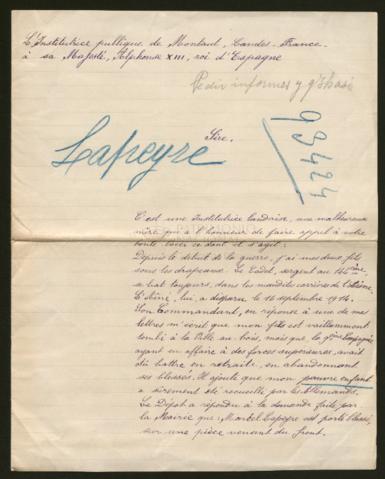 L'Institutrice publique de Montaut, Landes-France.
à sa Majesté, Alphonse XIII, roi d'Espagne
Pedir informes y
Lapeyre
Sire,
93424
C'est une Institutrice landaise, une malheureuse
mère qui a l'honneur de faire appel à votre
bonté. Voici ce dont il s'agit:
Depuis le début de la guerre, j'ai mes deux fils
sous les drapeaux. Le Cadet, sergent au 144ème,
se bat toujours, dans les maudites carrières de l'Aisne.
L'aîné, lui, a disparu le 16 septembre 1914.
Son Commandant, en réponse à une de mes
lettres m'écrit que mon fils est vaillamment
tombé à la Ville-au-bois, mais que la Compagnie
ayant eu affaire à des forces supérieures, avait
dû battre en retraite, en abandonnant
ses blessés. Il ajoute que mon pauvre enfant
a sûrement été recueilli par les Allemands.
Le Dépôt a répondu à la demande faite par
la Mairie que: Marcel Lapeyre est porté blessé,
sur une pièce venant du front.